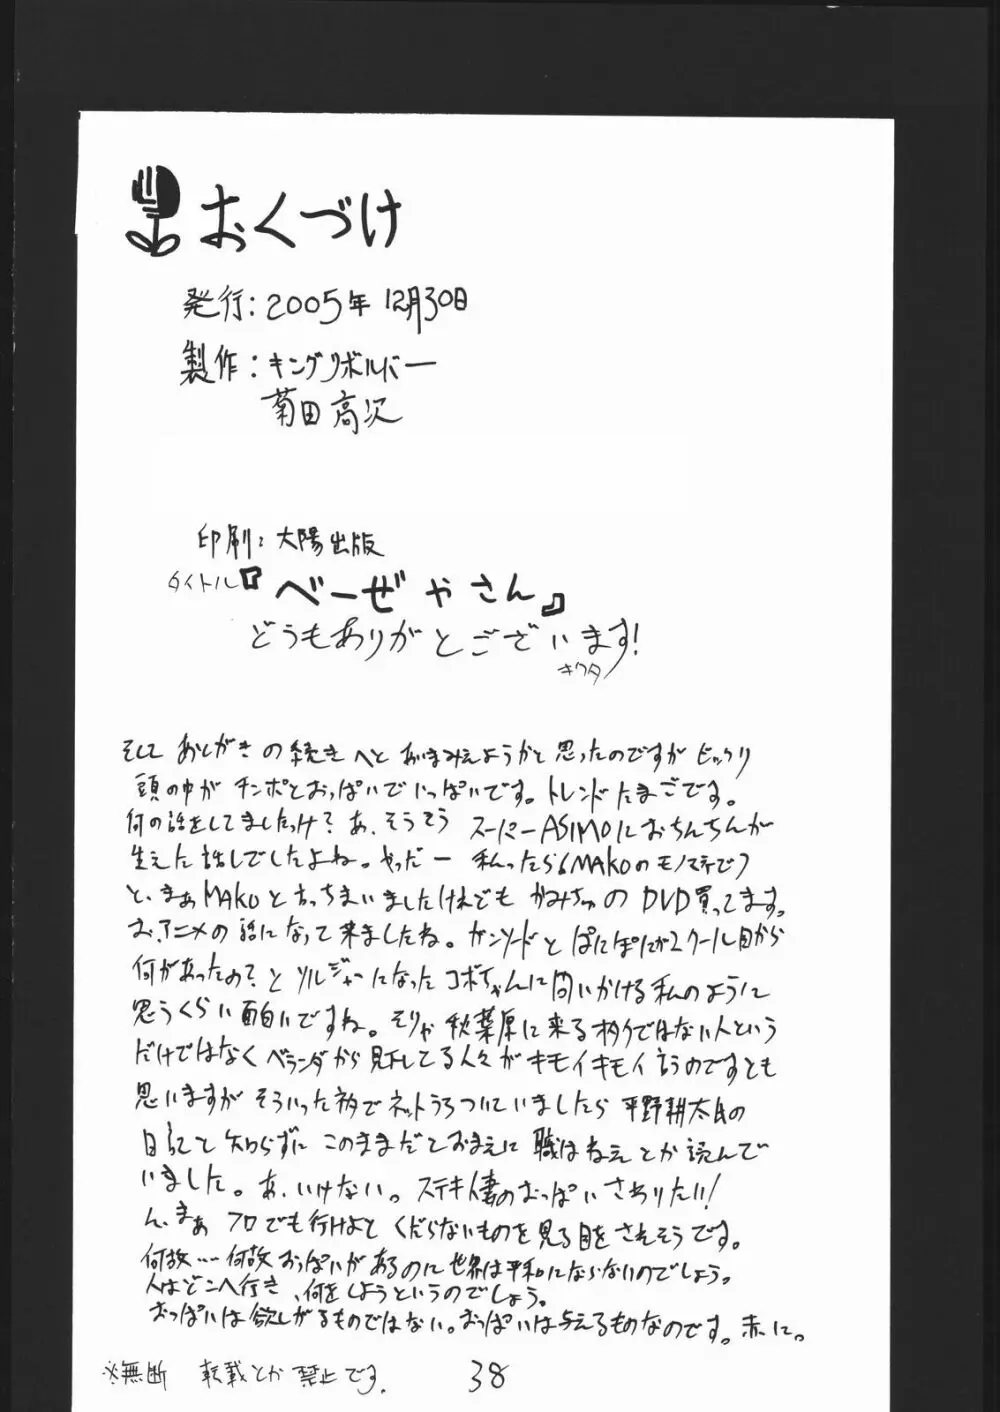 おくづけ
発行：2005年12月30日
製作：キングリボルバー
菊田高次
印刷：大陽出版
タイトル『べーぜやさん』
どうもありがとございます！
キクタ
そして あとがきの続きへと あいまみえようかと思ったのですが ビックリ
頭の中が チンポとおっぱいで いっぱいです。トレンドたまごです。
何の話をしてましたっけ？あ、そうそう スーパーASIMOにおちんちんが
生えた話しでしたよね。やっだー 私ったら MAKOのモノマネで
と、まぁMAKOと言っちまいましたけれども かみちゅのDVD買ってます。
お、アニメの話になって来ましたね。ガンソードと ぱにぽにが2クール目から
何があったの？と ソルジャーになったコボちゃんに問いかける私のように
思うくらい面白いですね。そりゃ秋葉原に来るオタクではない人という
だけではなくベランダから見下してる人々がキモイキモイ言うのですとも
思いますが そういった 中でネットうろついていましたら 平野耕太氏の
日記と知らずに このままだておまえに 職はねぇとか 読んで
いました。あ、いけない。ステキ人妻のおっぱいさわりたい！
ん、まぁ フロでも行けよと くだらないものを見る目をされそうです。
何故……何故おっぱいがあるのに世界は平和にならないのでしょう。
人はどこへ行き、何をしようというのでしょう。
おっぱいは欲しがるものではない。おっぱいは与えるものなのです。赤に。
※無断 転載とか禁止です。
38